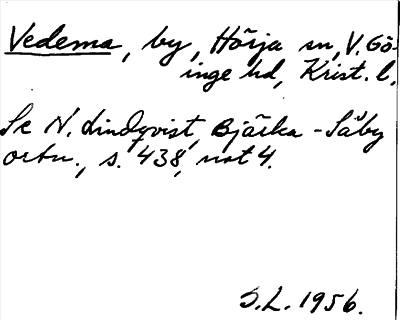 Vedema, by, Hörja sn, V. Gö-
inge hd, Krist. l.
Se N. Lindqvist, Bjärka-Säby
ortn., s. 438, not 4.
S.L. 1956.